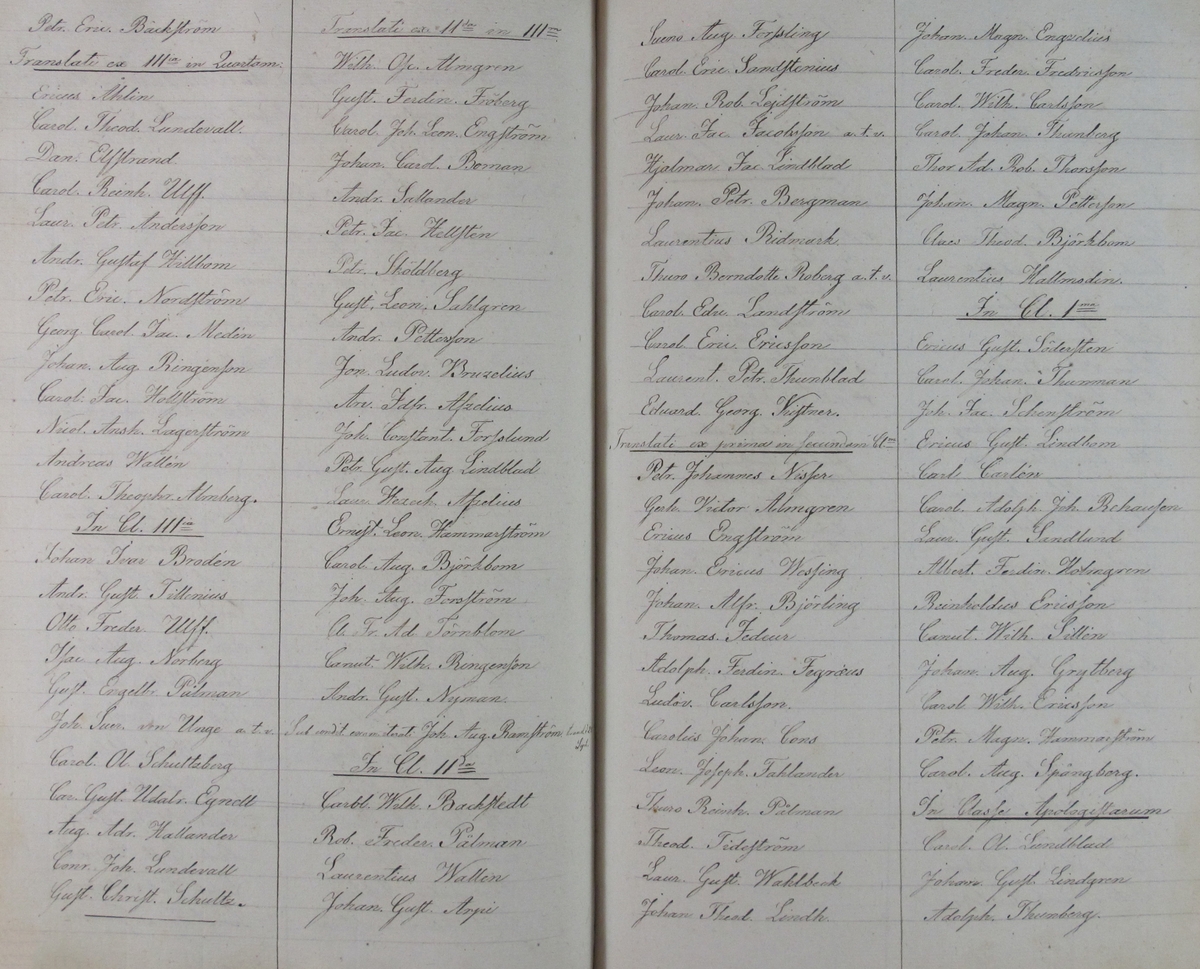 Petr. Eric. Bäckström
Translati ex III in Quartam.
Ericus Ahlin
Carol. Theod. Lundevall.
Dan. Elfstrand
Carol. Reinh. Ulff.
Laur. Petr. Andersson
Andr. Gustaf Willbom
Petr. Eric. Nordström
Georg Carol. Jac. Medén
Johan. Aug. Ringenson
Carol. Jac. Hollström
Nicol. Ansh. Lagerström
Andreas Wallén
Carol. Theophr. Almberg.
In Cl. III
Johan Ivar Brodén
Andr. Gust. Tillenius
Otto Freder. Ulff.
Isac Aug. Norberg
Gust. Engelbr. Pålman
Joh. Suer. von Unge a. t. v.
Carol. Ol. Schultzberg
Car. Gust. Udalr. Egnell
Aug. Adr. Hallander
Conr. Joh. Lundevall
Gust. Christ. Schultz.
Translati ex II in III
Wilh. Almgren
Gust. Ferdin. Fröberg
Carol. Joh. Leon. Engström
Johan. Carol. Boman
Andr. Sallander
Petr. Jac. Hellsten
Petr. Sköldberg
Gust. Leon. Sahlgren
Andr. Petterson
Jon. Ludov. Bruzelius
Arv. Idfr. Afzelius
Joh. Constant. Forsslund
Petr. Gust. Aug. Lindblad
Laur. Hezech. Afzelius
Ernest. Leon. Hammarström
Carol. Aug. Björkbom
Joh. Aug. Forsström
Ol. Fr. Ad. Törnblom
Canut. Wilh. Ringenson
Andr. Gust. Nyman.
Joh. Aug. Ramström
In Cl. II
Carol. Wilh. Backstedt
Rob. Freder. Pålman
Laurentius Wallin
Johan. Gust. Arpi
Sueno Aug. Forssling
Carol. Eric. Sandstenius
Johan. Rob. Leijdström
Laur. Jac. Jacobsson a. t. v.
Hjalmar Jac. Lindblad
Johan. Petr. Bergman
Laurentius Ridmark
Thuro Berndotte Roberg a. t. v.
Carol. Edv. Landström
Carol. Eric. Ericsson
Laurent. Petr. Thunblad
Eduard. Georg. Küstner.
Translati ex prima in secundam Cl.
Petr. Johannes Nisser
Gerh. Victor Almgren
Ericus Engström
Johan. Ericus Wessing
Johan. Alfr. Björling
Thomas. Fedeur
Adolph. Ferdin. Fegræus
Ludov. Carlsson.
Carolus Johan. Cons
Leon. Joseph. Fahlander
Thuro Reinh. Pålman
Theod. Tideström
Laur. Gust. Wahlbeck
Johan Theod. Lindh.
Johan. Magn. Engzelius
Carol. Freder. Fredricsson
Carol. Wilh. Carlsson
Carol. Johan. Thunberg
Thor Ad. Rob. Thorsson
Johan. Magn. Petterson
Claes Theod. Björkbom
Laurentius Hallmodin.
In Cl. I
Ericus Gust. Södersten
Carol. Johan. Thunman
Joh. Jac. Schenström
Ericus Gust. Lindbom
Carl Carlén
Carol. Adolph. Joh. Rohausson
Laur. Gust. Sandlund
Albert. Ferdin. Holmgren
Reinholdus Ericsson
Canut. Wilh. Sillén
Johan. Aug. Grytberg
Carol. Wilh. Ericsson
Petr. Magn. Hammarström
Carol. Aug. Spångborg.
In Classe Apologistarum
Carol. Ol. Lundblad
Johan. Gust. Lindgren
Adolph. Thunberg.